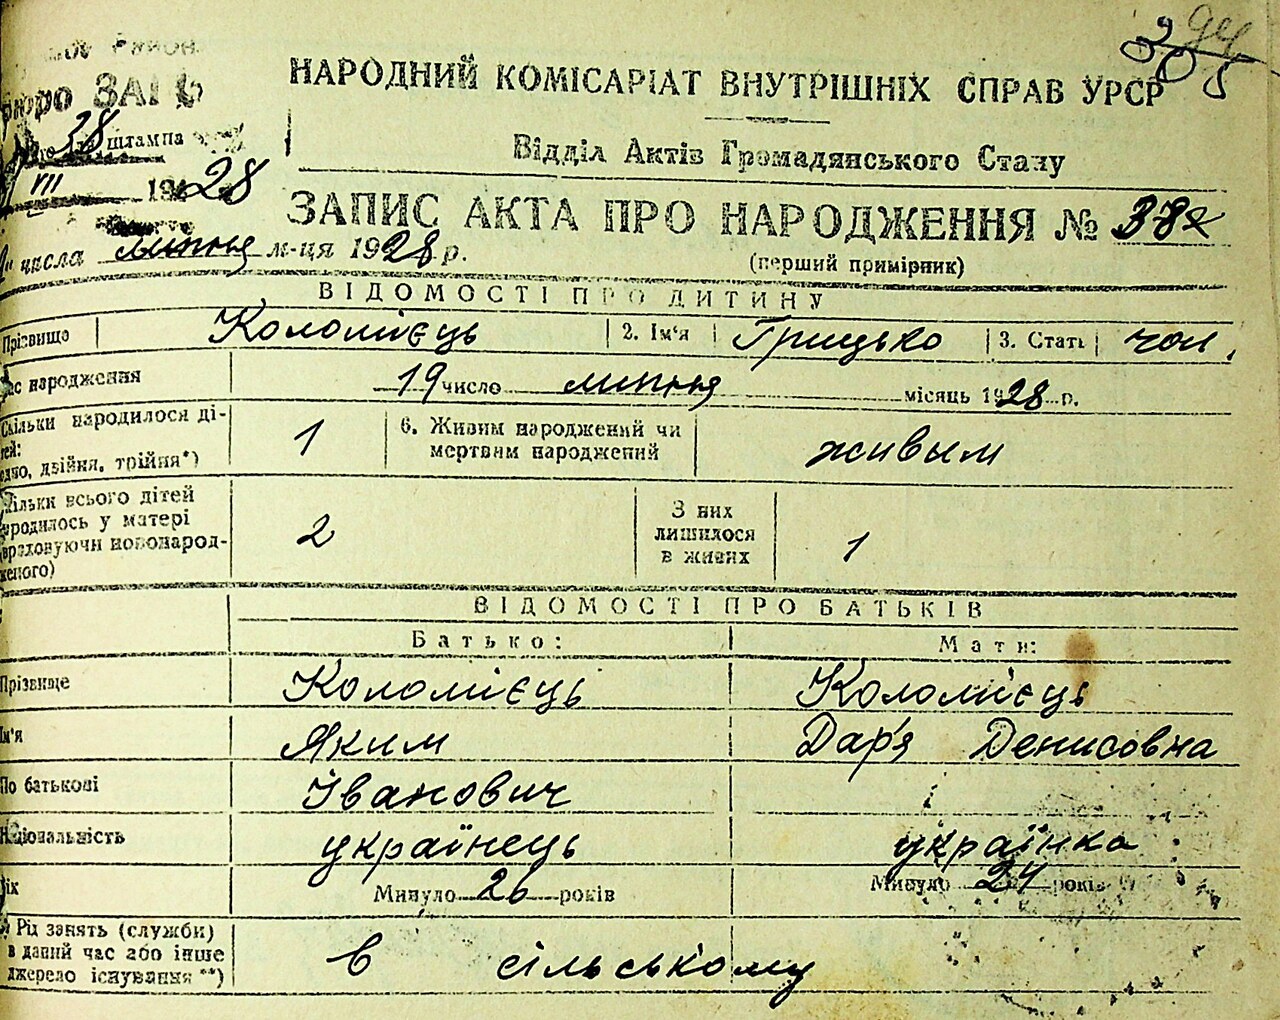 бюро ЗАГС
38 штампа
VII 1928
305
94
НАРОДНИЙ КОМІСАРІАТ ВНУТРІШНІХ СПРАВ УРСР
Відділ Актів Громадянського Стану
ЗАПИС АКТА ПРО НАРОДЖЕННЯ № 382
числа липня м-ця 1928 р.
(перший примірник)
ВІДОМОСТІ ПРО ДИТИНУ
Прізвище Коломієць 2. Ім'я Грицько 3. Стать чол.
Час народження 19 число липня місяць 1928 р.
Скільки народилося ді-
тей:
едно, двійня, трійня*)
1
6. Живим народжений чи
мертвим народжений
живым
Скільки всього дітей
уродилось у матері
(враховуючи новонарод-
женого)
2
З них
лишилося
в живих
1
ВІДОМОСТІ ПРО БАТЬКІВ
Батько: Мати:
Прізвище Коломієць Коломієць
Ім'я Яким Дар'я Денисовна
По батькові Іванович
Національність українець українка
Вік Минуло 26 років Минуло 24 років
Рід занять (служби)
в даний час або інше
джерело існування**)
в сільському